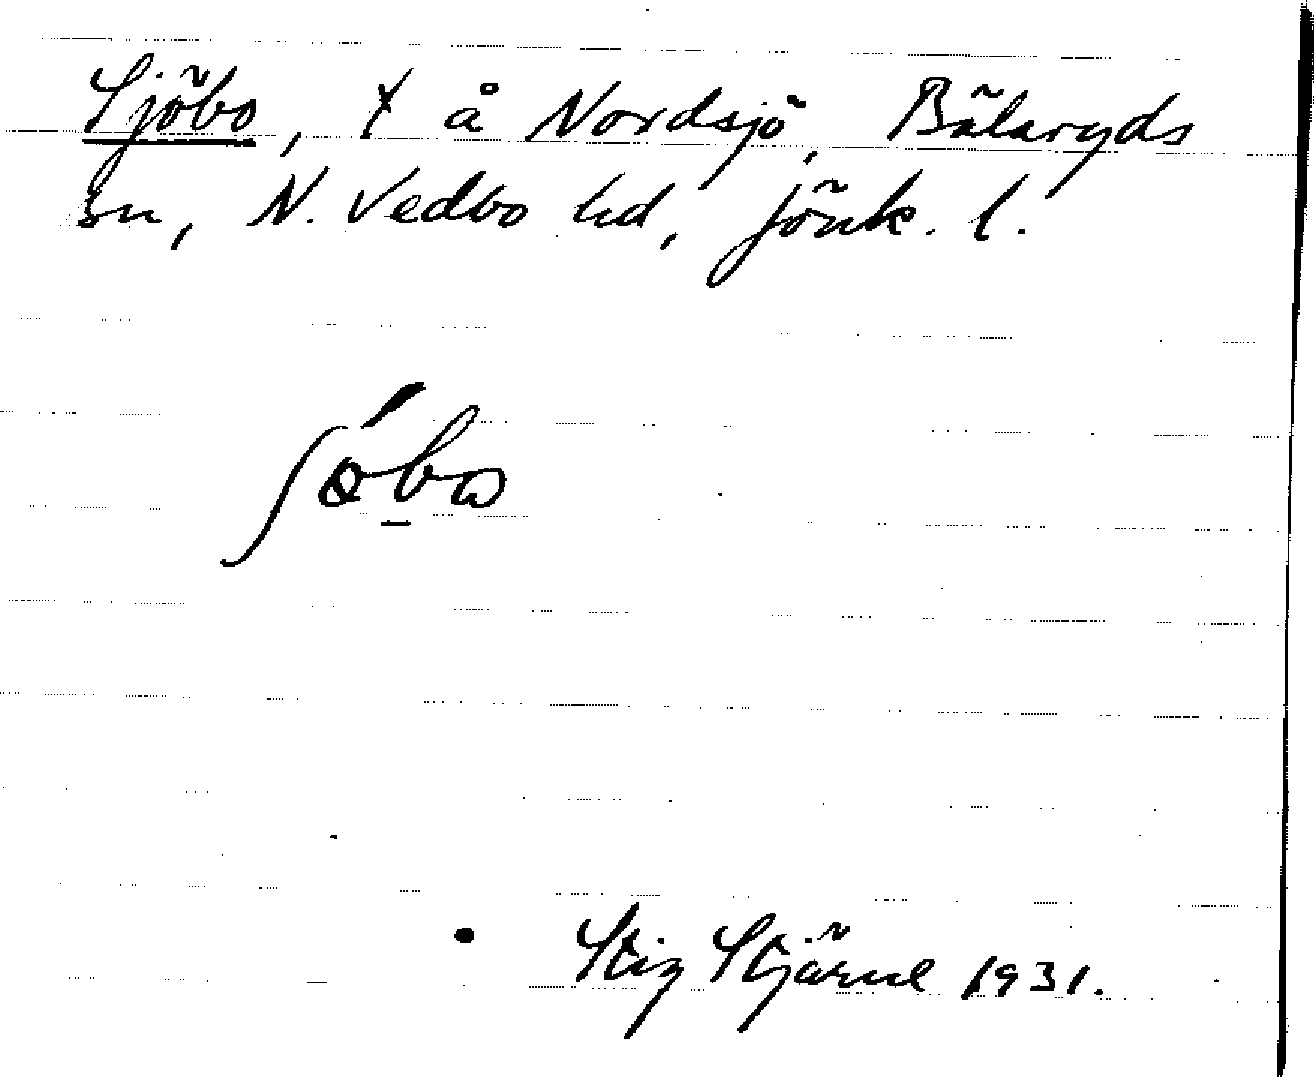 Sjöbo, t å Nordsjö, Bälaryds
sn, N. Vedbo hd, Jönk. l.
Stig Stjärne 1931.